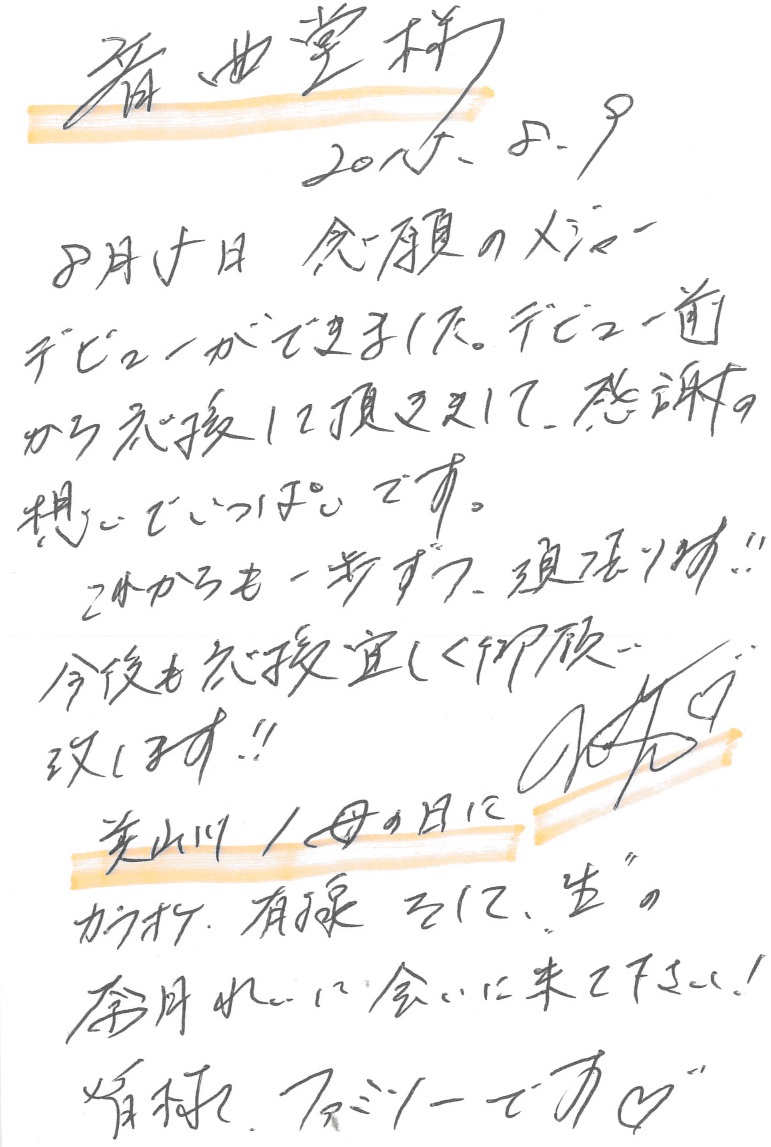 音曲堂様
2015.8.9
8月5日 念願のメジャー
デビューができました。デビュー前
から応援して頂きまして、感謝の
想いでいっぱいです。
これからも一歩ずつ、頑張ります!!
今後も応援宜しく御願い
致します!!
美山川/母の日に
カラオケ、有線 そして、"生"の
奈月れいに会いに来て下さい!
皆様で、ファミリーです♡